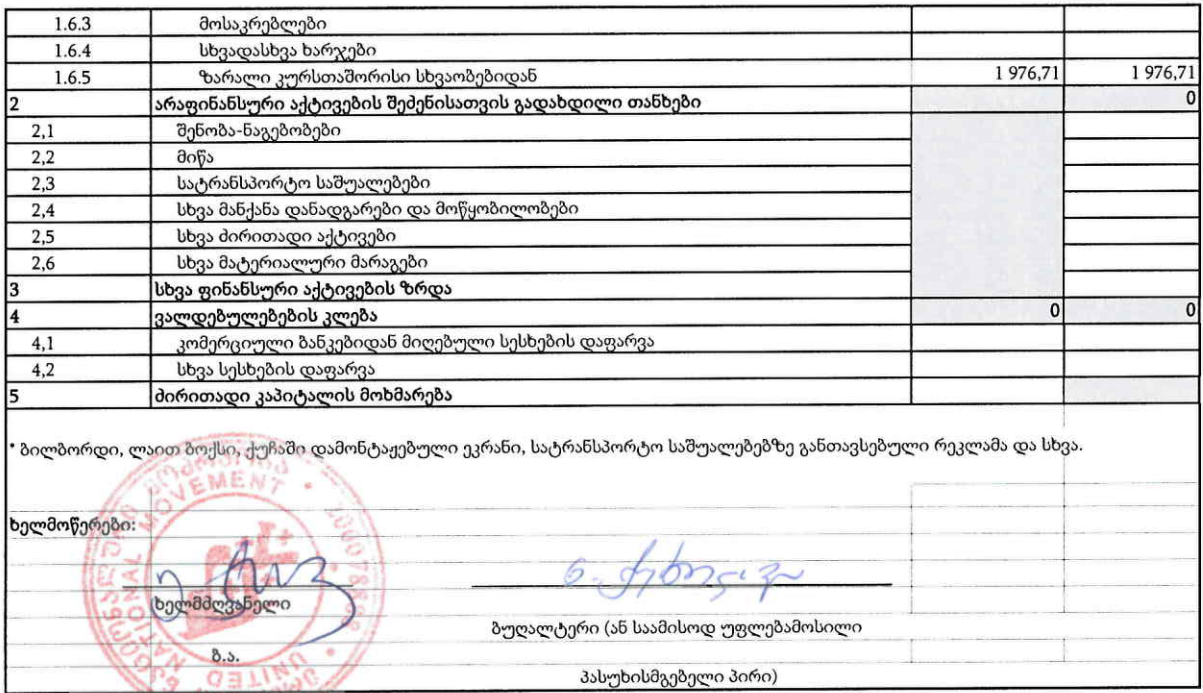 1.6.3 მოსაკრებლები
1.6.4 სხვადასხვა ხარჯები
1.6.5 ზარალი კურსთაშორისი სხვაობებიდან 1 976,71 1 976,71
2 არაფინანსური აქტივების შეძენისათვის გადახდილი თანხები 0
2,1 შენობა-ნაგებობები
2,2 მიწა
2,3 სატრანსპორტო საშუალებები
2,4 სხვა მანქანა დანადგარები და მოწყობილობები
2,5 სხვა ძირითადი აქტივები
2,6 სხვა მატერიალური მარაგები
3 სხვა ფინანსური აქტივების ზრდა
4 ვალდებულებების კლება 0 0
4,1 კომერციული ბანკებიდან მიღებული სესხების დაფარვა
4,2 სხვა სესხების დაფარვა
5 ძირითადი კაპიტალის მოხმარება
* ბილბორდი, ლაით ბოქსი, ქუჩაში დამონტაჟებული ეკრანი, სატრანსპორტო საშუალებებზე განთავსებული რეკლამა და სხვა.
ხელმოწერები:
ხელმძღვანელი
ბუღალტერი (ან საამისოდ უფლებამოსილი
ბ.ა.
პასუხისმგებელი პირი)
UNITED NATIONAL MOVEMENT